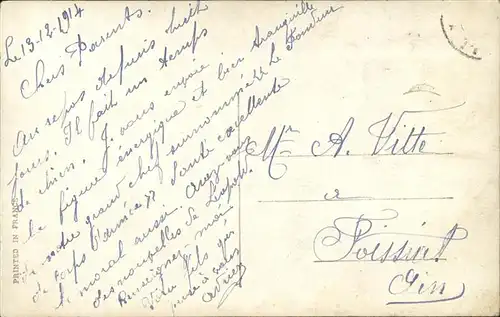 Le 13-12-1914
Chers Parents.
Au repos depuis huit
jours. Il fait un temps
de chien. Je vous envoie
la figure énergique et bien tranquille
de notre grand chef surnommé le Fondeur
de corps d'armée. Santé excellente
et moral aussi. Avez-vous
des nouvelles de Léopold.
Renseignez-moi.
Votre fils qui
pense à vous
Mr A. Vitte
a
Poissiat
Ain
PRINTED IN FRANCE